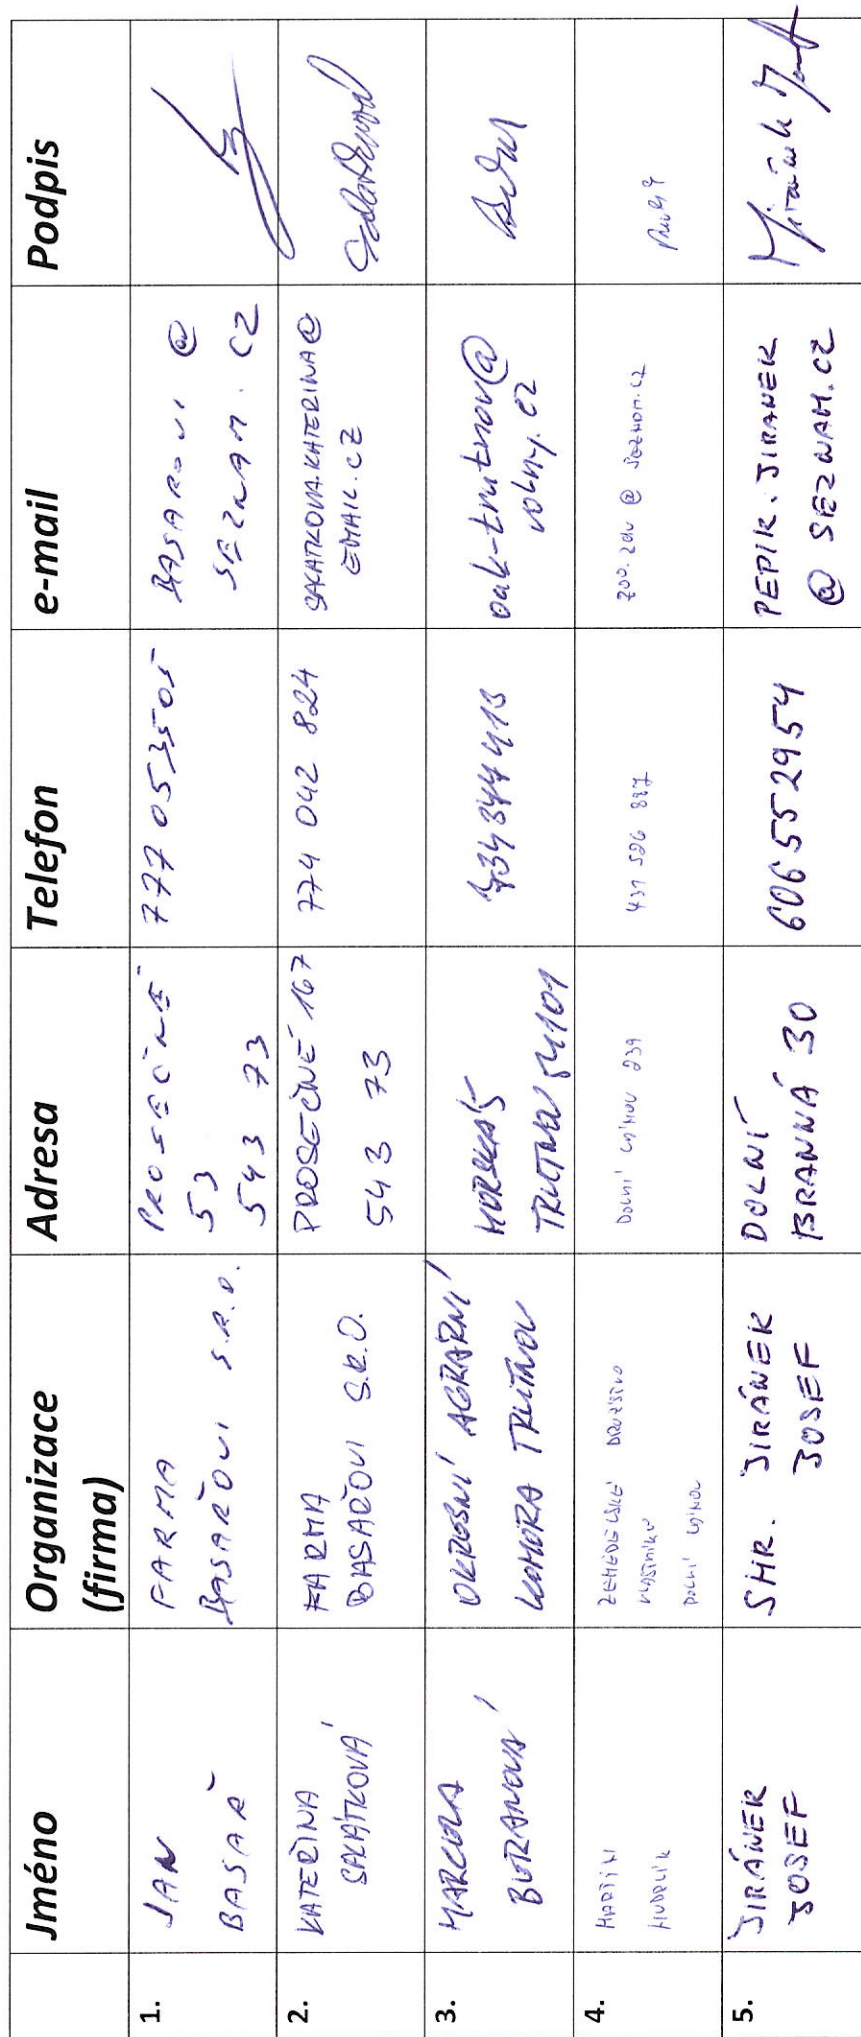 Jméno
Organizace
(firma)
Adresa
Telefon
e-mail
Podpis
1.
JAN
BASAŘ
FARMA
BASAŘOVI S.R.O.
PROSEČNÉ
53
543 73
777 053505
BASAROVI @
SEZNAM.CZ
2.
KATEŘINA
SAKÁTKOVÁ
FARMA
BASAŘOVI S.R.O.
PROSEČNÉ 167
543 73
774 042 824
SAKATKOVA.KATERINA@
EMAIL.CZ
3.
MARCELA
OKRESNÍ AGRÁRNÍ
KOMORA TRUTNOV
HORSKÁ 5
TRUTNOV 54101
oak-trutnov@
volny.cz
4.
MARTIN
ZEMĚDĚLSKÉ DRUŽSTVO
VLASTNÍKŮ
DOLNÍ LÁNOV
DOLNÍ LÁNOV 239
@ seznam.cz
5.
JIRÁNEK
JOSEF
SHR. JIRÁNEK
JOSEF
DOLNÍ
BRANNÁ 30
606552954
PEPIK.JIRANEK
@ SEZNAM.CZ